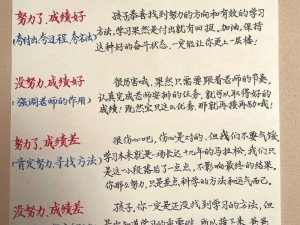 努力了,成绩好
(夸付出,夸过程,夸方法)
孩子恭喜找到努力的方向和有效的学习
方法,学习果然是付出就有回报,加油,保持
这种好的奋斗状态,一定能让你更上一层楼!
没努力,成绩好
(强调老师的作用)
很厉害哦,果然只需要跟着老师的节奏,
认真完成老师安排的任务,就可以取得好的
成绩!既然在只这么优秀,那就再接再励哦!
努力了,成绩差
(肯定努力,寻找方法)
很伤心吧,伤心是对的,但我们不要气馁
学习本来就是一场长达十几年的马拉松,我们只
是这一小段落后了一点点,不影响最终的结果,
你那么努力,只是差点科学的方法和运气而已,
没努力,成绩差
孩子,你一定是还没找到学习的方法,但